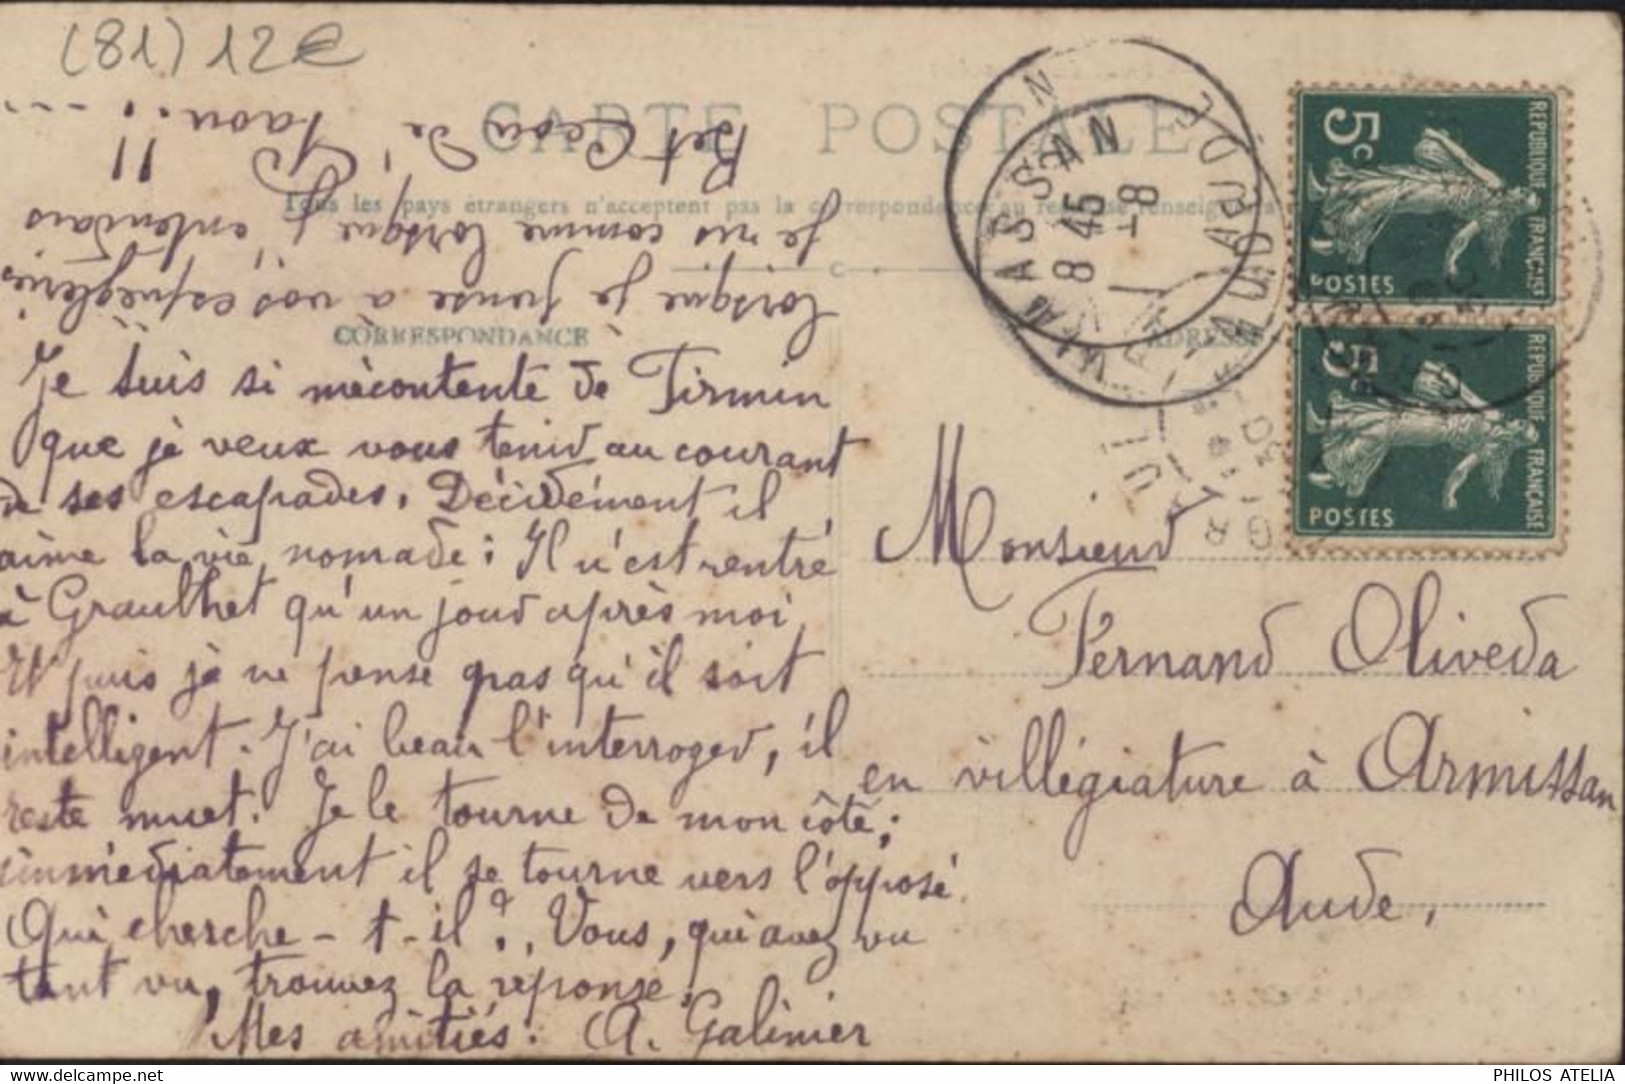 (81) 12€
CARTE POSTALE
Tous les pays étrangers n'acceptent pas la correspondance au
CORRESPONDANCE
ADRESSE
REPUBLIQUE FRANÇAISE
5c
POSTES
REPUBLIQUE FRANÇAISE
5c
POSTES
8 45
1-8
Je suis si mécontente de Firmin
que je veux vous tenir au courant
de ses escapades. Décidément il
aime la vie nomade : Il n'est rentré
à Graulhet qu'un jour après moi
Et puis je ne pense pas qu'il soit
intelligent. J'ai beau l'interroger, il
reste muet. Je le tourne de mon côté ;
immédiatement il se tourne vers l'opposé.
Qui cherche-t-il ? Vous, qui avez vu
tant vu, trouvez la réponse.
Mes amitiés. A. Galinier
lorsque je pense à vos espiègleries
Je ris comme lorsque j'entendais
de Paon !!
Monsieur
Fernand Oliveda
en villégiature à Armissan
Aude.
PHILOS ATELIA